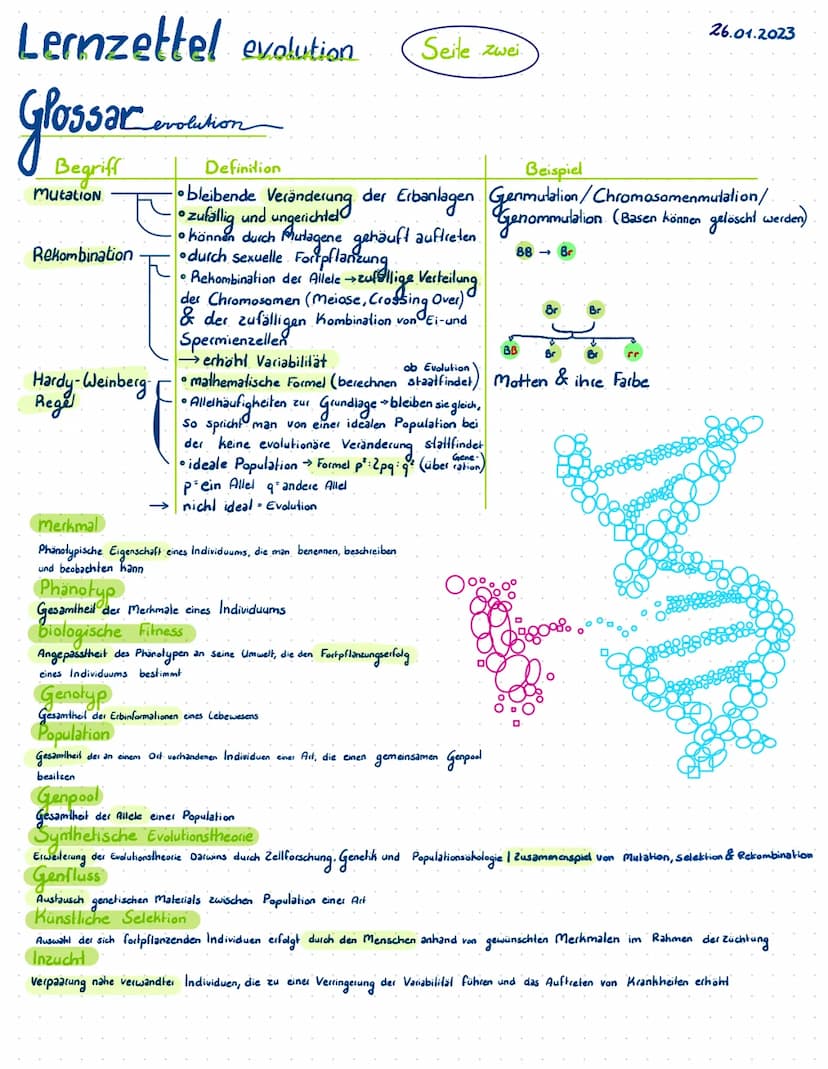 Lernzettel evolution
Seite zwei
26.01.2023
Glossar evolution
Begriff
Definition
Beispiel
Mutation
• bleibende Veränderung der Erbanlagen
• zufällig und ungerichtet
• können durch Mutagene gehäuft auftreten
Genmutation/Chromosomenmutation/
Genommutation (Basen können gelöscht werden)
BB → Br
Rekombination
• durch sexuelle Fortpflanzung
• Rekombination der Allele → zufällige Verteilung
der Chromosomen (Meiose, Crossing Over)
& der zufälligen Kombination von Ei-und
Spermienzellen
→ erhöht Variabilität
Br Br
BB Br Br rr
Hardy-Weinberg-
Regel
• mathematische Formel (berechnen ob Evolution stattfindet)
• Allelhäufigkeiten zur Grundlage → bleiben sie gleich,
so spricht man von einer idealen Population bei
der keine evolutionäre Veränderung stattfindet
• ideale Population → Formel p²:2pq:q² (über Generation)
p = ein Allel q = andere Allel
→ nicht ideal = Evolution
Motten & ihre Farbe
Merkmal
Phänotypische Eigenschaft eines Individuums, die man benennen, beschreiben
und beobachten kann
Phänotyp
Gesamtheit der Merkmale eines Individuums
biologische Fitness
Angepasstheit des Phänotypen an seine Umwelt, die den Fortpflanzungserfolg
eines Individuums bestimmt
Genotyp
Gesamtheit der Erbinformationen eines Lebewesens
Population
Gesamtheit der an einem Ort vorhandenen Individuen einer Art, die einen gemeinsamen Genpool
besitzen
Genpool
Gesamtheit der Allele einer Population
Synthetische Evolutionstheorie
Erweiterung der Evolutionstheorie Darwins durch Zellforschung, Genetik und Populationsökologie | Zusammenspiel von Mutation, Selektion & Rekombination
Genfluss
Austausch genetischen Materials zwischen Population einer Art
Künstliche Selektion
Auswahl der sich fortpflanzenden Individuen erfolgt durch den Menschen anhand von gewünschten Merkmalen im Rahmen der Züchtung
Inzucht
Verpaarung nahe verwandter Individuen, die zu einer Verringerung der Variabilität führen und das Auftreten von Krankheiten erhöht